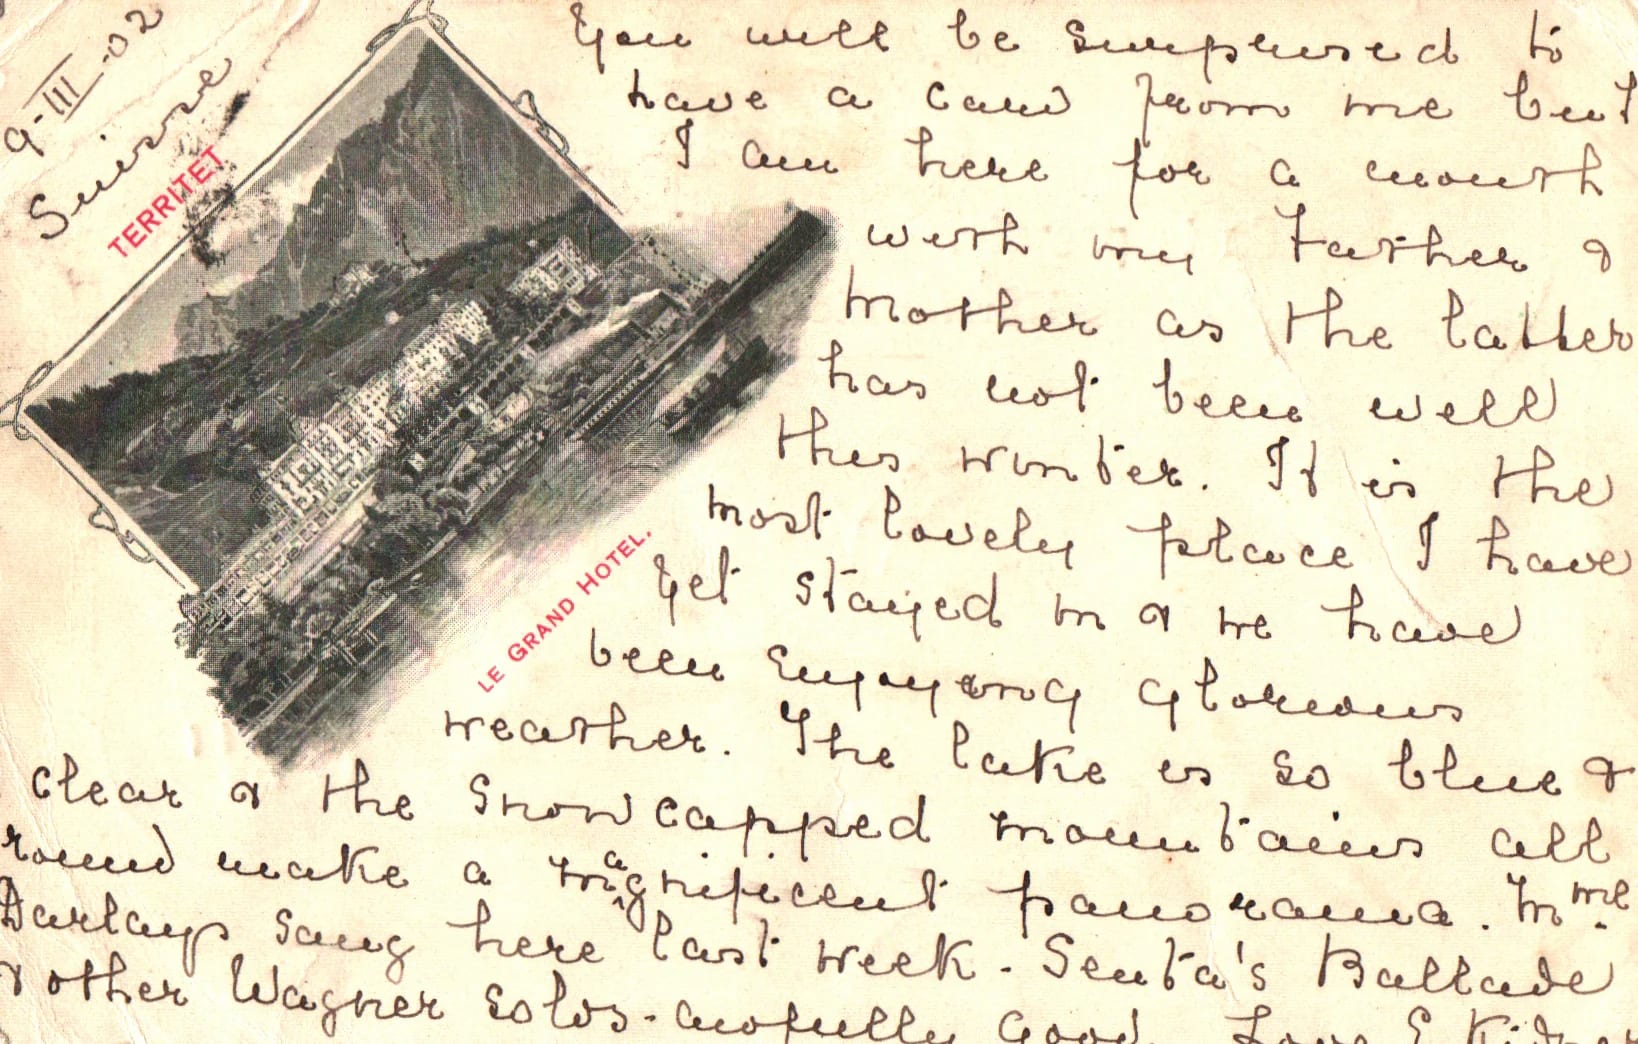 9-III-02
Suisse
TERRITET
LE GRAND HOTEL.
You will be surprised to
have a card from me but
I am here for a month
with my Father &
Mother as the latter
has not been well
this winter. It is the
most lovely place I have
yet stayed in & we have
been enjoying glorious
weather. The lake is so blue &
clear & the snowcapped mountains all
round make a magnificent panorama. Mme.
sang here last week - Senta's Ballade
& other Wagner solos - awfully good. Love E